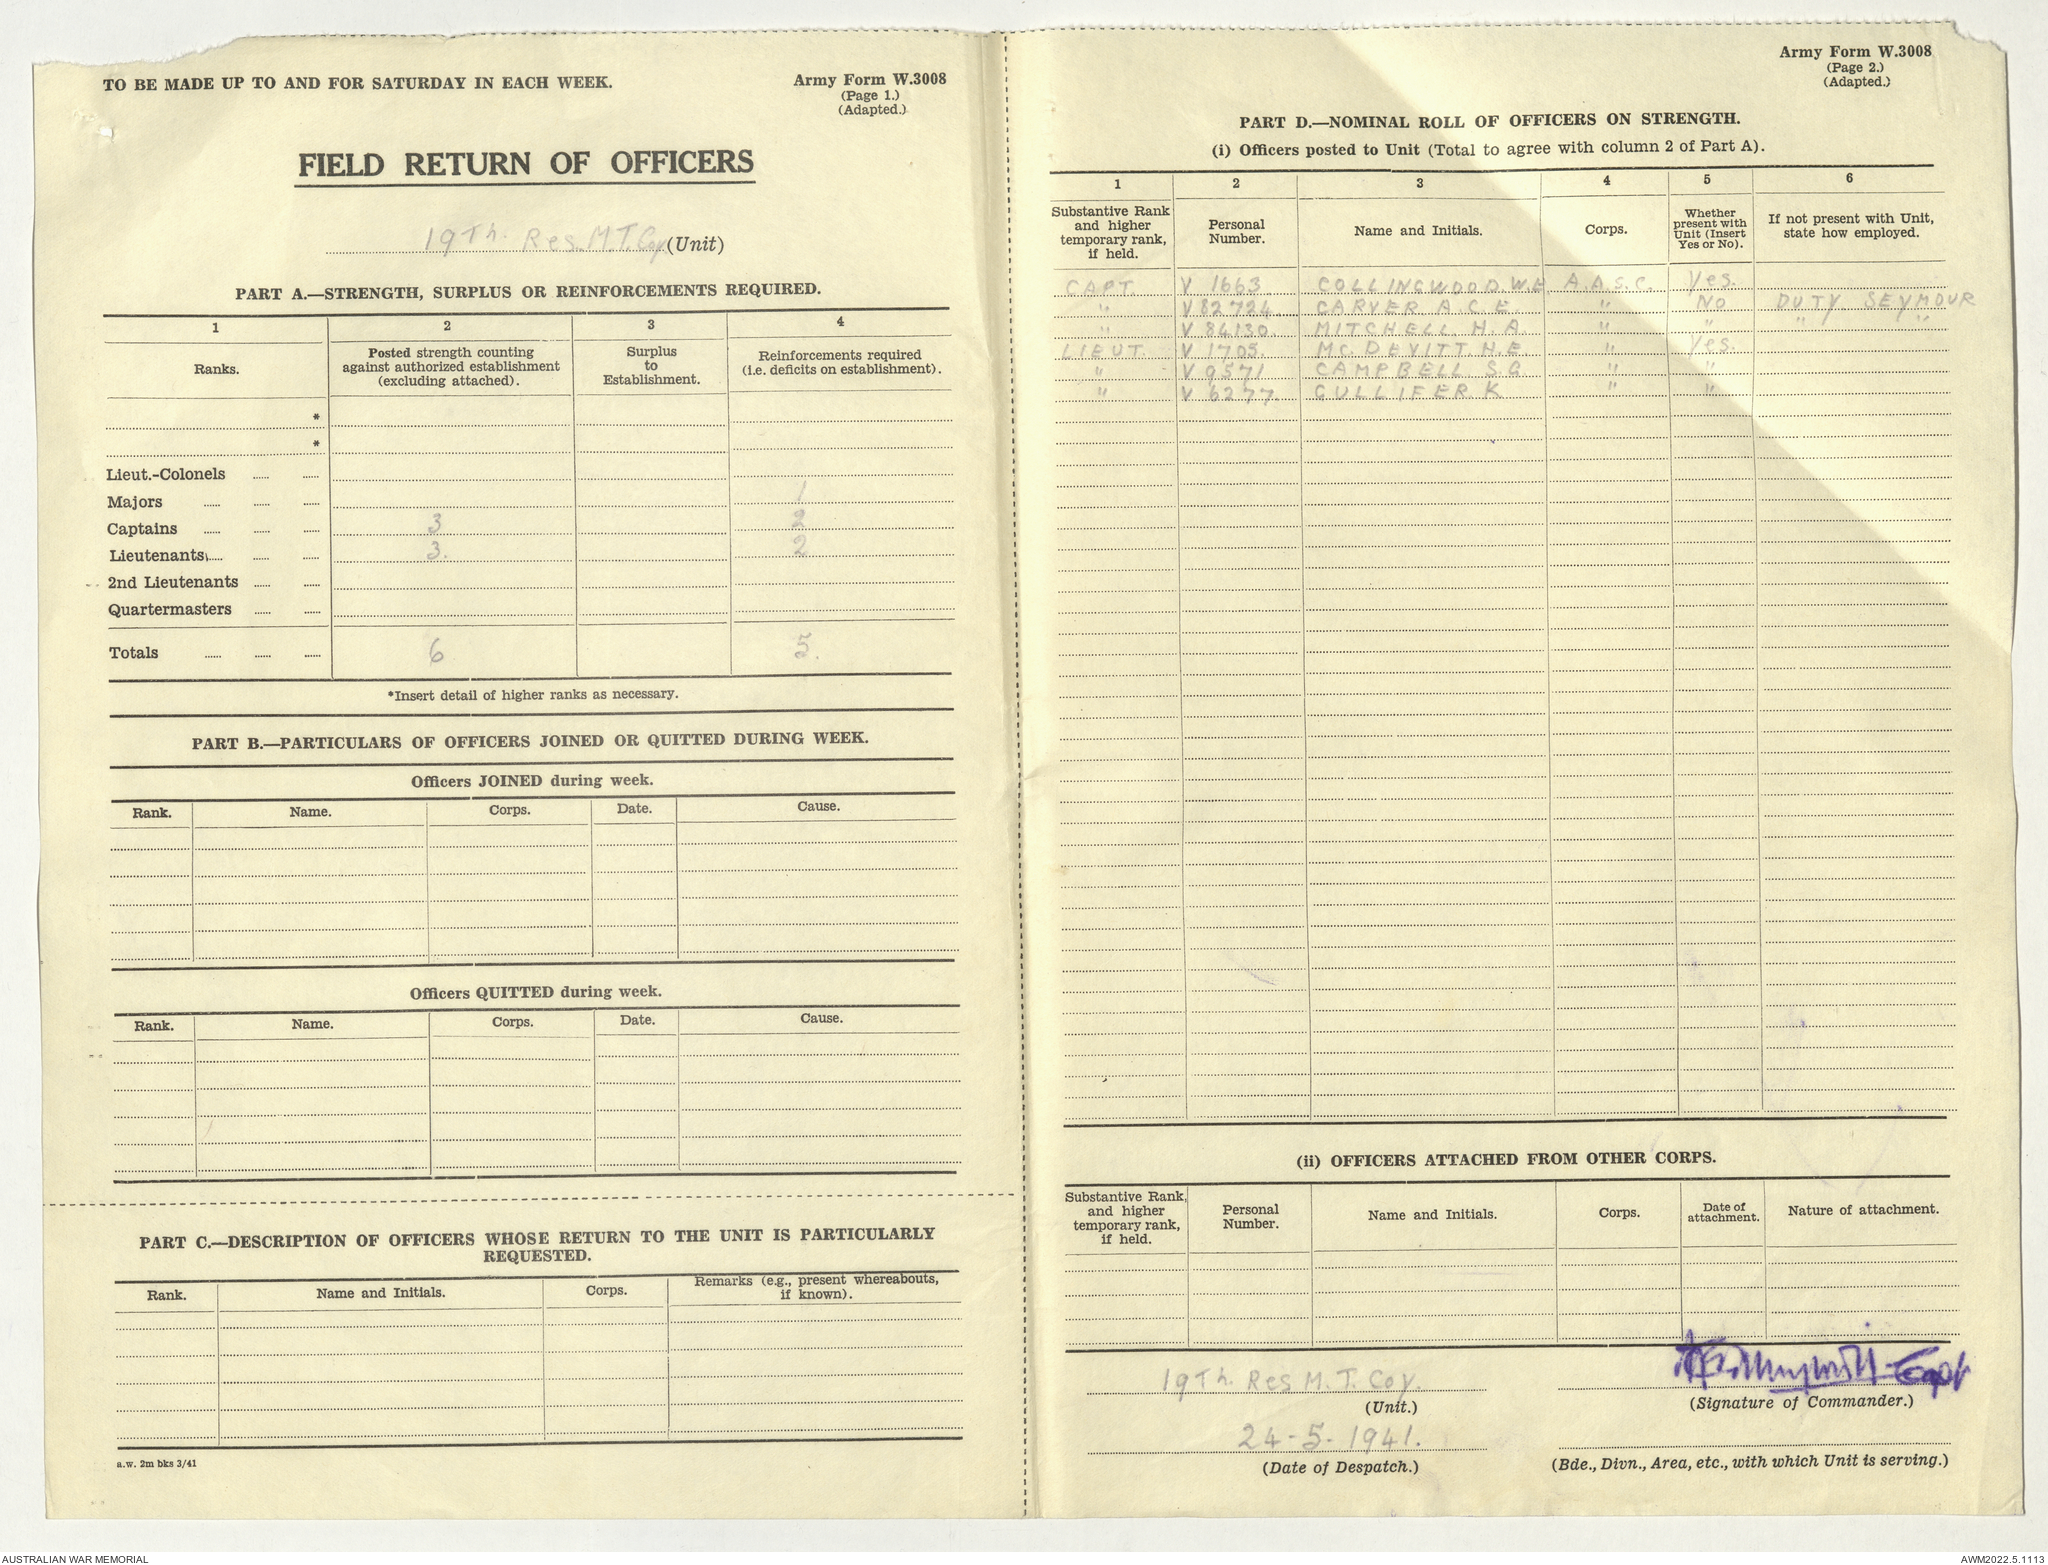 TO BE MADE UP TO AND FOR SATURDAY IN EACH WEEK.
Army Form W.3008
(Page 1.)
(Adapted.)
FIELD RETURN OF OFFICERS
19Th. Res. M.T. Coy. (Unit)
PART A.—STRENGTH, SURPLUS OR REINFORCEMENTS REQUIRED.
1 2 3 4
Ranks.
Posted strength counting against authorized establishment (excluding attached).
Surplus to Establishment.
Reinforcements required (i.e. deficits on establishment).
*
*
Lieut.-Colonels
Majors 1
Captains 3 2
Lieutenants 3. 2
2nd Lieutenants
Quartermasters
Totals 6 5.
*Insert detail of higher ranks as necessary.
PART B.—PARTICULARS OF OFFICERS JOINED OR QUITTED DURING WEEK.
Officers JOINED during week.
Rank. Name. Corps. Date. Cause.
Officers QUITTED during week.
Rank. Name. Corps. Date. Cause.
PART C.—DESCRIPTION OF OFFICERS WHOSE RETURN TO THE UNIT IS PARTICULARLY
REQUESTED.
Rank. Name and Initials. Corps. Remarks (e.g., present whereabouts, if known).
a.w. 2m bks 3/41
Army Form W.3008
(Page 2.)
(Adapted.)
PART D.—NOMINAL ROLL OF OFFICERS ON STRENGTH.
(i) Officers posted to Unit (Total to agree with column 2 of Part A).
1 2 3 4 5 6
Substantive Rank and higher temporary rank, if held.
Personal Number.
Name and Initials.
Corps.
Whether present with Unit (Insert Yes or No).
If not present with Unit, state how employed.
CAPT. V 1663 COLLINGWOOD. W.E. A.A.S.C. Yes.
" V 82724 CARVER A.C.E. " NO DUTY SEYMOUR
" V 84130 MITCHELL H.A. " " " "
LIEUT. V 1705. Mc.DEVITT H.E " Yes.
" V 9571 CAMPBELL S.G " "
" V 6277. GULLIFER. K " "
(ii) OFFICERS ATTACHED FROM OTHER CORPS.
Substantive Rank, and higher temporary rank, if held.
Personal Number.
Name and Initials.
Corps.
Date of attachment.
Nature of attachment.
19Th. Res M. T. Coy.
(Unit.)
Capt
(Signature of Commander.)
24-5-1941.
(Date of Despatch.)
(Bde., Divn., Area, etc., with which Unit is serving.)
AUSTRALIAN WAR MEMORIAL
AWM2022.5.1113